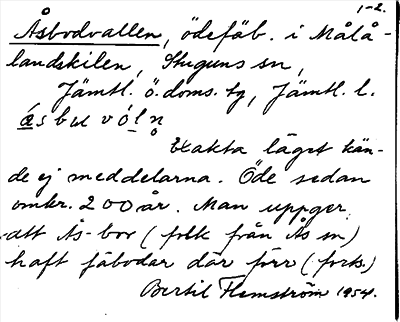 1-2.
Åsbodvallen, ödefäb. i Målå-
landskilen, Stuguns sn,
Jämtl. ö. doms. tg, Jämtl. l.
ásbuvóln̥
Exakta läget kän-
de ej meddelarna. Öde sedan
omkr. 200 år. Man uppger
att Ås-bor (folk från Ås sn)
haft fäbodar där förr (forts.)
Bertil Flemström 1954.